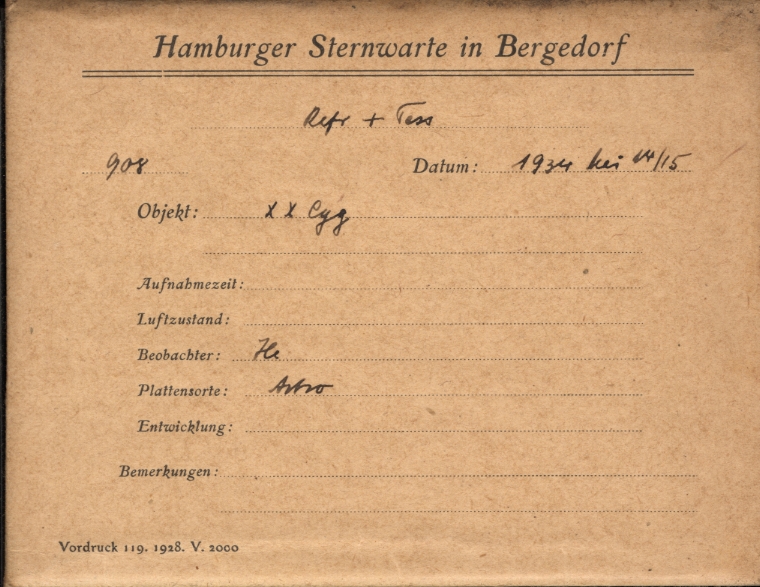 Hamburger Sternwarte in Bergedorf
Refr + Tess
908 Datum: 1934 Mai 14/15
Objekt: XX Cyg
Aufnahmezeit:
Luftzustand:
Beobachter: He
Plattensorte: Astro
Entwicklung:
Bemerkungen:
Vordruck 119. 1928. V. 2000